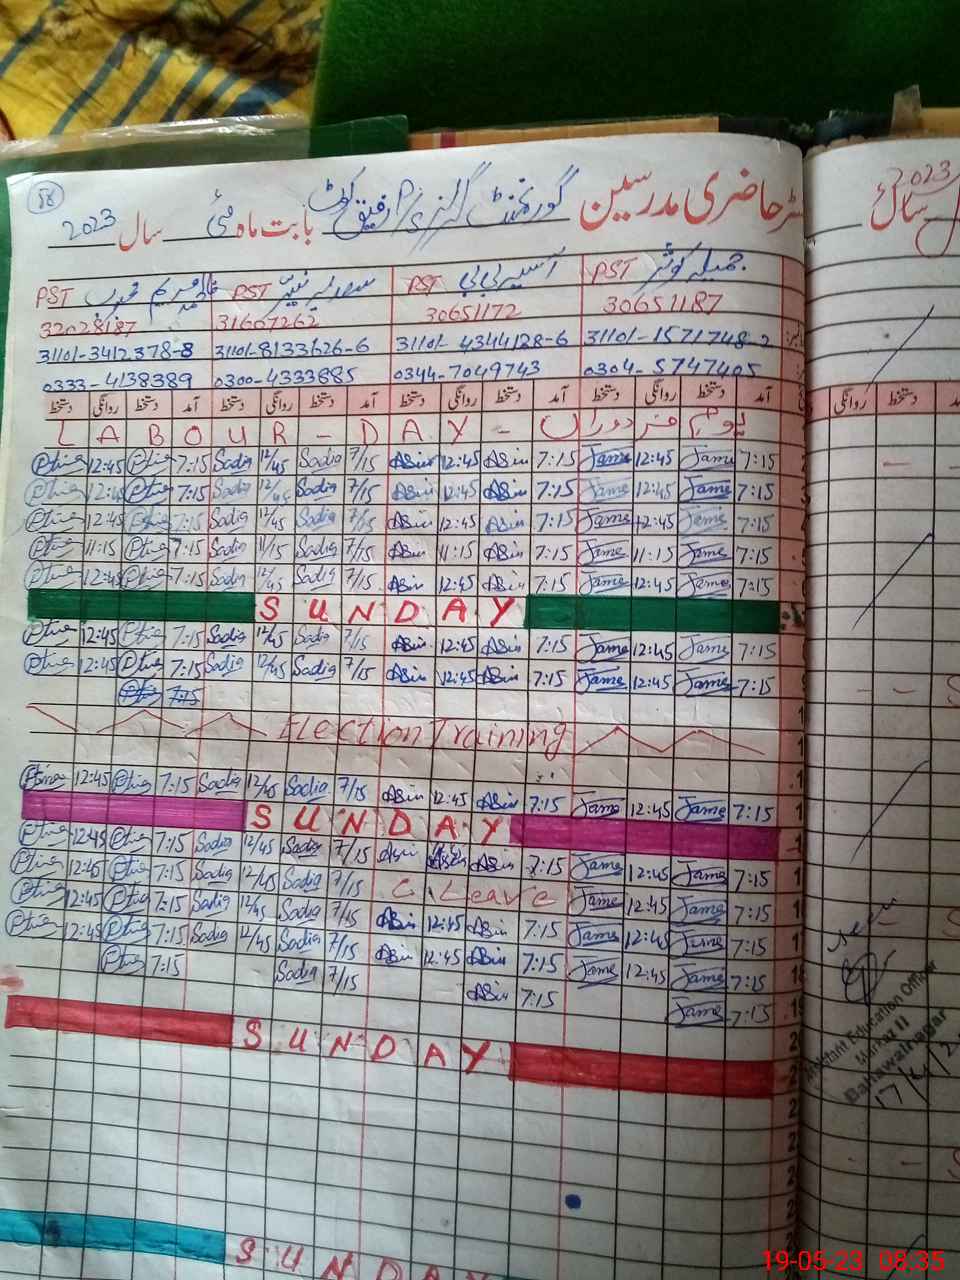 58
رجسٹر حاضری مدرسین گورنمنٹ گرلز P/S رفیق کوٹ بابت ماہ مئی سال 2023
جمیلہ کوثر PST آسیہ بی بی PST سعدیہ PST مریم PST
30651187 30651172 31667262 32028187
31101-1571748-2 31101-4344128-6 31101-8133626-6 31101-3412378-8
0304-5747405 0344-7049743 0300-4333685 0333-4138389
آمد دستخط روانگی دستخط آمد دستخط روانگی دستخط آمد دستخط روانگی دستخط آمد دستخط روانگی دستخط
LABOUR-DAY- یوم مزدوراں
12:45 7:15 Sadia 12/45 Sadia 7/15 Asia 12:45 Asia 7:15 Jame 12:45 Jame 7:15
12:45 7:15 Sadia 12/45 Sadia 7/15 Asia 12:45 Asia 7:15 Jame 12:45 Jame 7:15
12:45 7:15 Sadia 12/45 Sadia 7/15 Asia 12:45 Asia 7:15 Jame 12:45 Jame 7:15
11:15 7:15 Sadia 11/15 Sadia 7/15 Asia 11:15 Asia 7:15 Jame 11:15 Jame 7:15
12:45 7:15 Sadia 12/45 Sadia 7/15 Asia 12:45 Asia 7:15 Jame 12:45 Jame 7:15
SUNDAY
12:45 7:15 Sadia 12/45 Sadia 7/15 Asia 12:45 Asia 7:15 Jame 12:45 Jame 7:15
12:45 7:15 Sadia 12/45 Sadia 7/15 Asia 12:45 Asia 7:15 Jame 12:45 Jame 7:15
7:15
Election Training
12:45 7:15 Sadia 12/45 Sadia 7/15 Asia 12:45 Asia 7:15 Jame 12:45 Jame 7:15
SUNDAY
12:45 7:15 Sadia 12/45 Sadia 7/15 Asia Asia 7:15 Jame 12:45 Jame 7:15
12:45 7:15 Sadia 12/45 Sadia 7/15 C. Leave Jame 12:45 Jame 7:15
12:45 7:15 Sadia 12/45 Sadia 7/15 Asia 12:45 Asia 7:15 Jame 12:45 Jame 7:15
12:45 7:15 Sadia 12/45 Sadia 7/15 Asia 12:45 Asia 7:15 Jame 12:45 Jame 7:15
7:15 Sadia 7/15 Asia 7:15 Jame 7:15
SUNDAY
SUNDAY
2023
سال
روانگی دستخط
Seen
Assistant Education Officer
Markaz II
Bahawalnagar
19-05-23 08:35